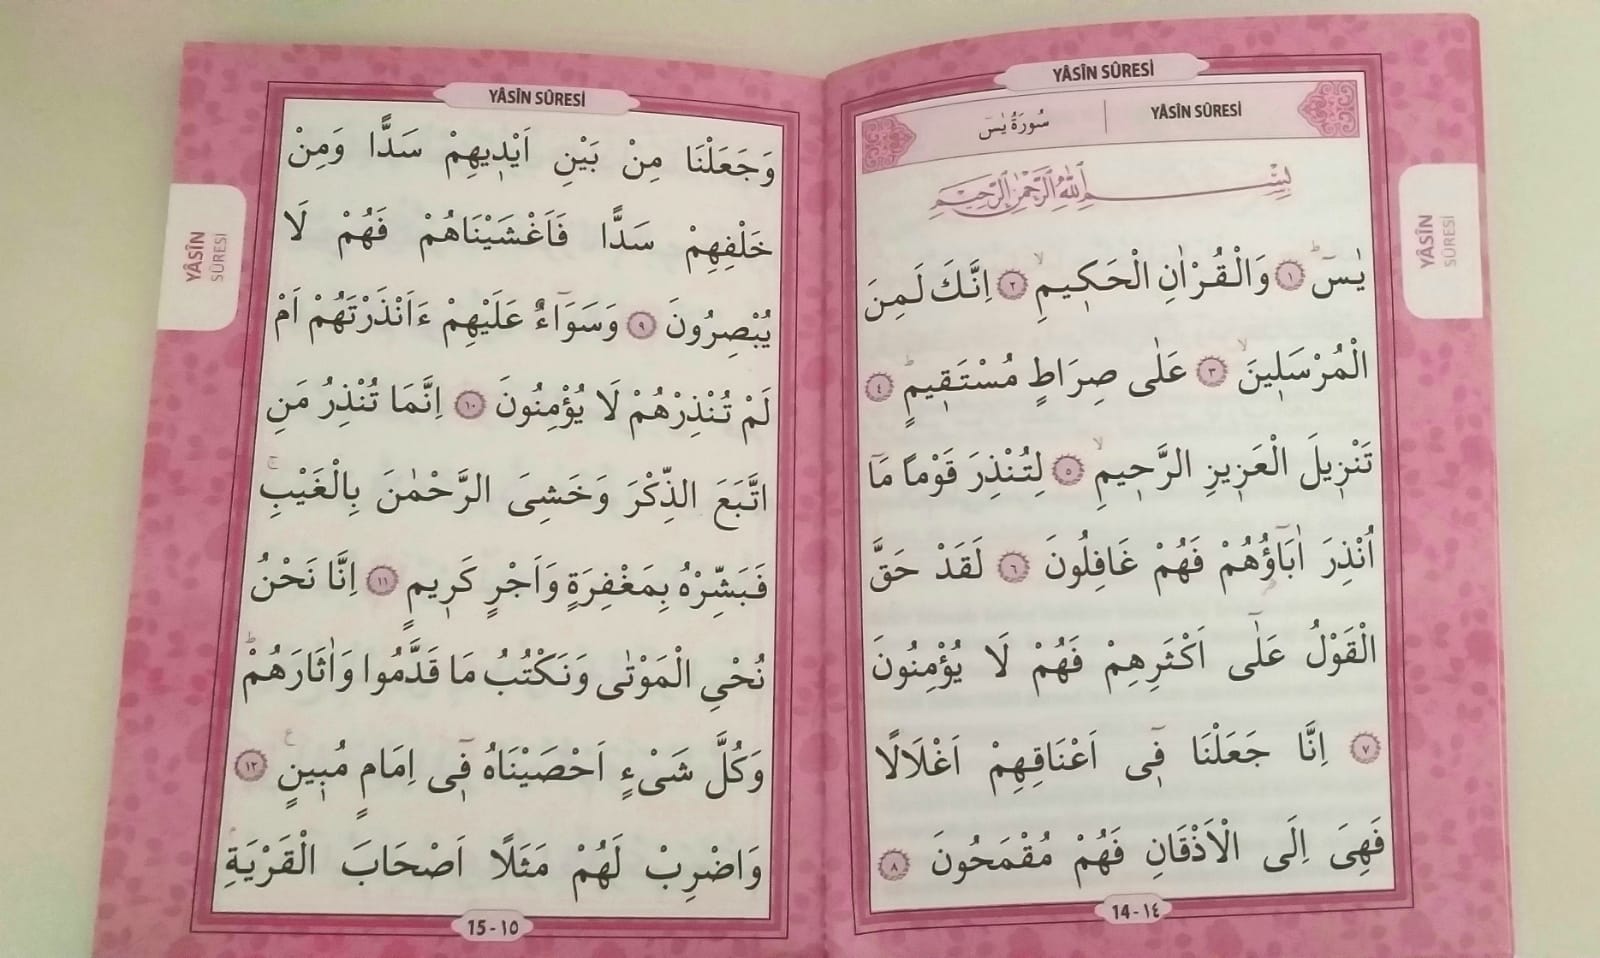 YÂSÎN SÛRESİ
سُورَةُ يٰسٓ
YÂSÎN SÛRESİ
بِسْمِ اللّٰهِ الرَّحْمٰنِ الرَّحِيمِ
يٰسٓ ﴿١﴾ وَالْقُرْاٰنِ الْحَكِيمِ ﴿٢﴾ اِنَّكَ لَمِنَ
الْمُرْسَلِينَ ﴿٣﴾ عَلٰى صِرَاطٍ مُسْتَقِيمٍ ﴿٤﴾
تَنْزِيلَ الْعَزِيزِ الرَّحِيمِ ﴿٥﴾ لِتُنْذِرَ قَوْمًا مَٓا
اُنْذِرَ اٰبَٓاؤُهُمْ فَهُمْ غَافِلُونَ ﴿٦﴾ لَقَدْ حَقَّ
الْقَوْلُ عَلٰٓى اَكْثَرِهِمْ فَهُمْ لَا يُؤْمِنُونَ
﴿٧﴾ اِنَّا جَعَلْنَا فِٓى اَعْنَاقِهِمْ اَغْلَالًا
فَهِىَ اِلَى الْاَذْقَانِ فَهُمْ مُقْمَحُونَ ﴿٨﴾
14-١٤
YÂSÎN
SÛRESİ
YÂSÎN SÛRESİ
وَجَعَلْنَا مِنْ بَيْنِ اَيْدِيهِمْ سَدًّا وَمِنْ
خَلْفِهِمْ سَدًّا فَاَغْشَيْنَاهُمْ فَهُمْ لَا
يُبْصِرُونَ ﴿٩﴾ وَسَوَٓاءٌ عَلَيْهِمْ ءَاَنْذَرْتَهُمْ اَمْ
لَمْ تُنْذِرْهُمْ لَا يُؤْمِنُونَ ﴿١٠﴾ اِنَّمَا تُنْذِرُ مَنِ
اتَّبَعَ الذِّكْرَ وَخَشِىَ الرَّحْمٰنَ بِالْغَيْبِۚ
فَبَشِّرْهُ بِمَغْفِرَةٍ وَاَجْرٍ كَرِيمٍ ﴿١١﴾ اِنَّا نَحْنُ
نُحْيِ الْمَوْتٰى وَنَكْتُبُ مَا قَدَّمُوا وَاٰثَارَهُمْؕ
وَكُلَّ شَىْءٍ اَحْصَيْنَاهُ فِٓى اِمَامٍ مُبِينٍ ﴿١٢﴾
وَاضْرِبْ لَهُمْ مَثَلًا اَصْحَابَ الْقَرْيَةِ
15-١٥
YÂSÎN
SÛRESİ